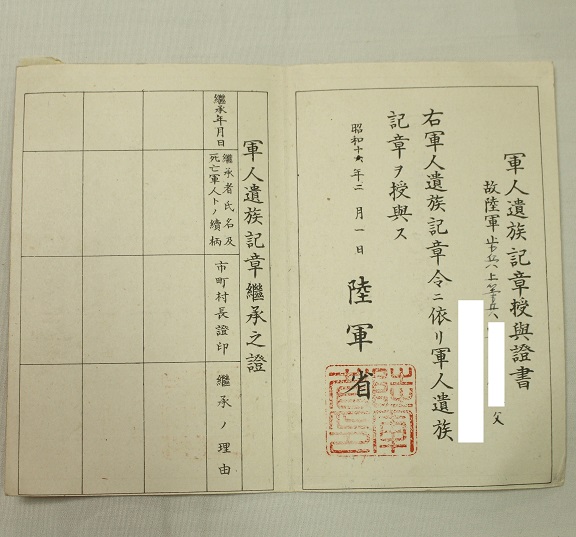 軍人遺族記章授與證書
故陸軍歩兵上等兵
父
右軍人遺族記章令ニ依リ軍人遺族
記章ヲ授與ス
昭和十六年二月一日
陸軍省
軍人遺族記章繼承之證
繼承年月日
繼承者氏名及
死亡軍人トノ續柄
市町村長證印
繼承ノ理由